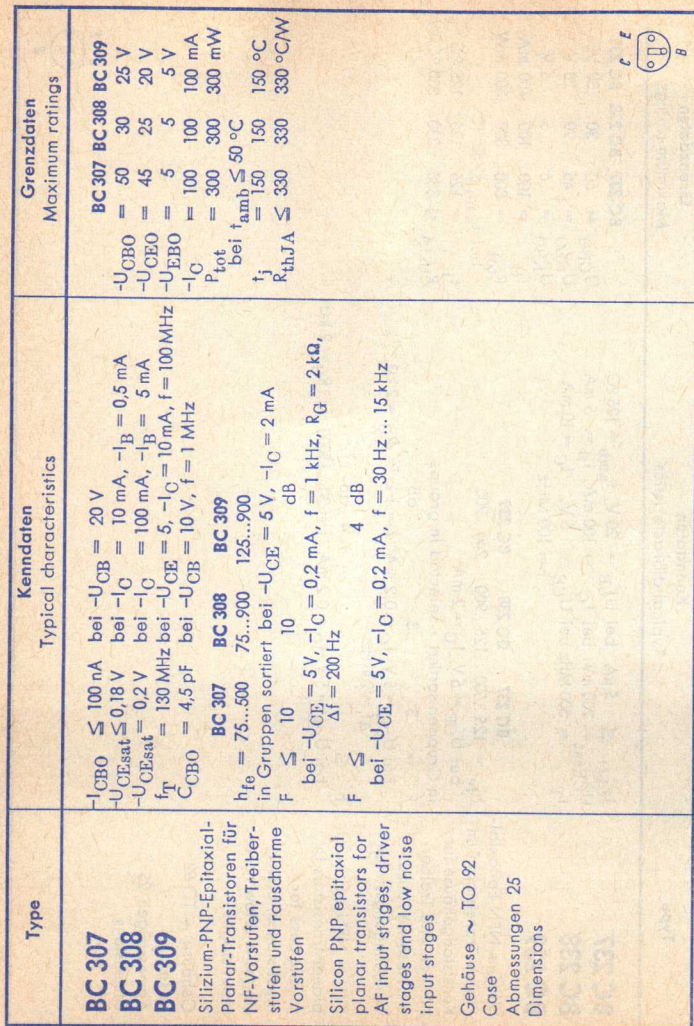 Type
BC 307
BC 308
BC 309
Silizium-PNP-Epitaxial-
Planar-Transistoren für
NF-Vorstufen, Treiber-
stufen und rauscharme
Vorstufen
Silicon PNP epitaxial
planar transistors for
AF input stages, driver
stages and low noise
input stages
Gehäuse ~ TO 92
Case
Abmessungen 25
Dimensions
Kenndaten
Typical characteristics
-I_CBO ≤ 100 nA bei -U_CB = 20 V
-U_CEsat ≤ 0,18 V bei -I_C = 10 mA, -I_B = 0,5 mA
-U_CEsat = 0,2 V bei -I_C = 100 mA, -I_B = 5 mA
f_T = 130 MHz bei -U_CE = 5, -I_C = 10 mA, f = 100 MHz
C_CBO = 4,5 pF bei -U_CB = 10 V, f = 1 MHz
BC 307 BC 308 BC 309
h_fe = 75...500 75...900 125...900
in Gruppen sortiert bei -U_CE = 5 V, -I_C = 2 mA
F ≤ 10 10 dB
bei -U_CE = 5 V, -I_C = 0,2 mA, f = 1 kHz, R_G = 2 kΩ,
Δf = 200 Hz
F ≤ 4 dB
bei -U_CE = 5 V, -I_C = 0,2 mA, f = 30 Hz ... 15 kHz
Grenzdaten
Maximum ratings
BC 307 BC 308 BC 309
-U_CBO = 50 30 25 V
-U_CEO = 45 25 20 V
-U_EBO = 5 5 5 V
-I_C = 100 100 100 mA
P_tot = 300 300 300 mW
bei t_amb ≤ 50 °C
t_j = 150 150 150 °C
R_thJA ≤ 330 330 330 °C/W
C E
B